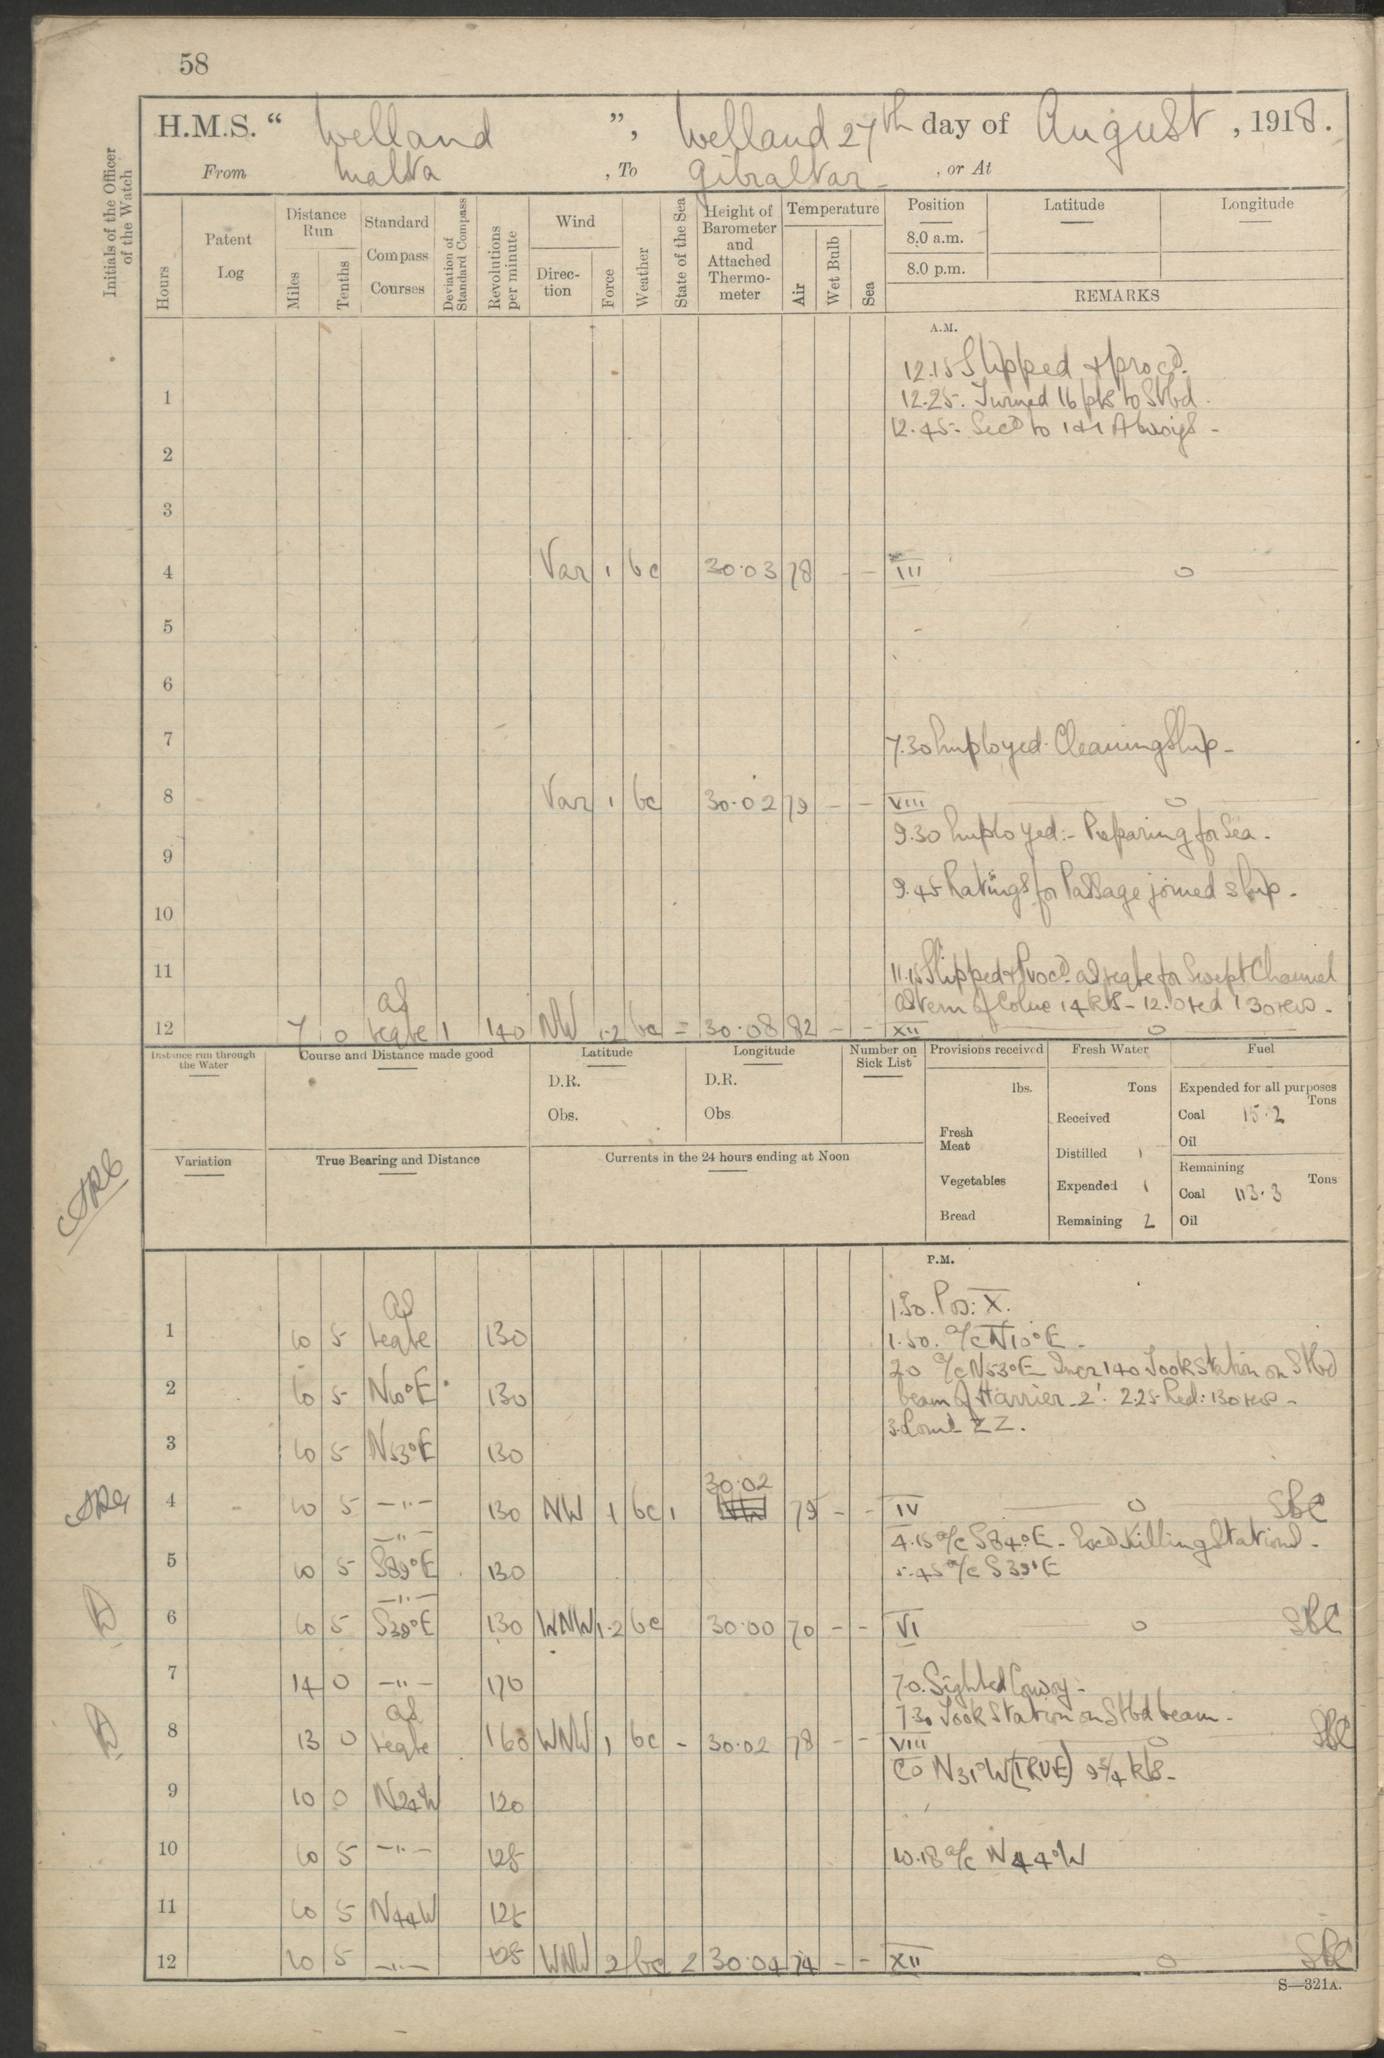 58
H.M.S. “ Welland ”, Welland 27th day of August, 1918.
From Malta , To Gibraltar - , or At
Initials of the Officer of the Watch
Hours
Patent Log
Distance Run
Miles
Tenths
Standard Compass Courses
Deviation of Standard Compass
Revolutions per minute
Wind
Direc-tion
Force
Weather
State of the Sea
Height of Barometer and Attached Thermo-meter
Temperature
Air
Wet Bulb
Sea
Position
8.0 a.m.
8.0 p.m.
Latitude
Longitude
REMARKS
A.M.
12.15 Slipped & procd.
1
12.25. Turned 16 pts to Stbd.
12.45. Secd to 1&1 Always -
2
3
4 Var 1 bc 30.03 78 - - IIII o
5
6
7
7.30 Employed. Cleaning Ship -
8 Var 1 bc 30.02 79 - - VIII o
9.30 Employed:- Preparing for Sea -
9
9.45 Ratings for Passage joined ship -
10
11
11.15 Slipped & Procd. as reqte for Swept Channel
astern of Colne 14 kts - 12.0 red 130 revs -
12 7 0 as reqte 1 140 NW 1-2 bc = 30.08 82 - - XII o
Distance run through the Water
Course and Distance made good
Latitude
D.R.
Obs.
Longitude
D.R.
Obs
Number on Sick List
Provisions received
lbs.
Fresh Meat
Vegetables
Bread
Fresh Water
Tons
Received
Distilled 1
Expended 1
Remaining 2
Fuel
Expended for all purposes
Tons
Coal 15.2
Oil
Remaining
Tons
Coal 113.3
Oil
Variation
True Bearing and Distance
Currents in the 24 hours ending at Noon
P.M.
1.50. Pos: X.
1 10 5 as reqte 130
1.50. a/c N10°E -
2.0 a/c N53°E Incr 140 Took Station on Stbd
2 10 5 N10°E 130
beam of Harrier - 2'. 2.25 Red: 130 revs -
3 10 5 N53°E 130
ZZ.
30.02
4 10 5 -"- 130 NW 1 bc 1 79 - - IV o SBC
4.15 a/c S84°E - Killing Stations -
5 10 5 -"- S89°E 130
5.45 a/c S39°E
6 10 5 -"- S39°E 130 WNW 1-2 bc 30.00 70 - - VI o SBC
7 14 0 -"- 170
7.0. Sighted Convoy -
7.30 Took Station on Stbd beam -
8 13 0 as reqte 160 WNW 1 bc - 30.02 78 - - VIII o SBC
Co N31°W (TRUE) 9¾ kts -
9 10 0 N24W 120
10 10 5 -"- 125
10.18 a/c N44°W
11 10 5 N44W 125
12 10 5 -"- 125 WNW 2 bc 2 30.04 74 - - XII o SBC
S—321A.